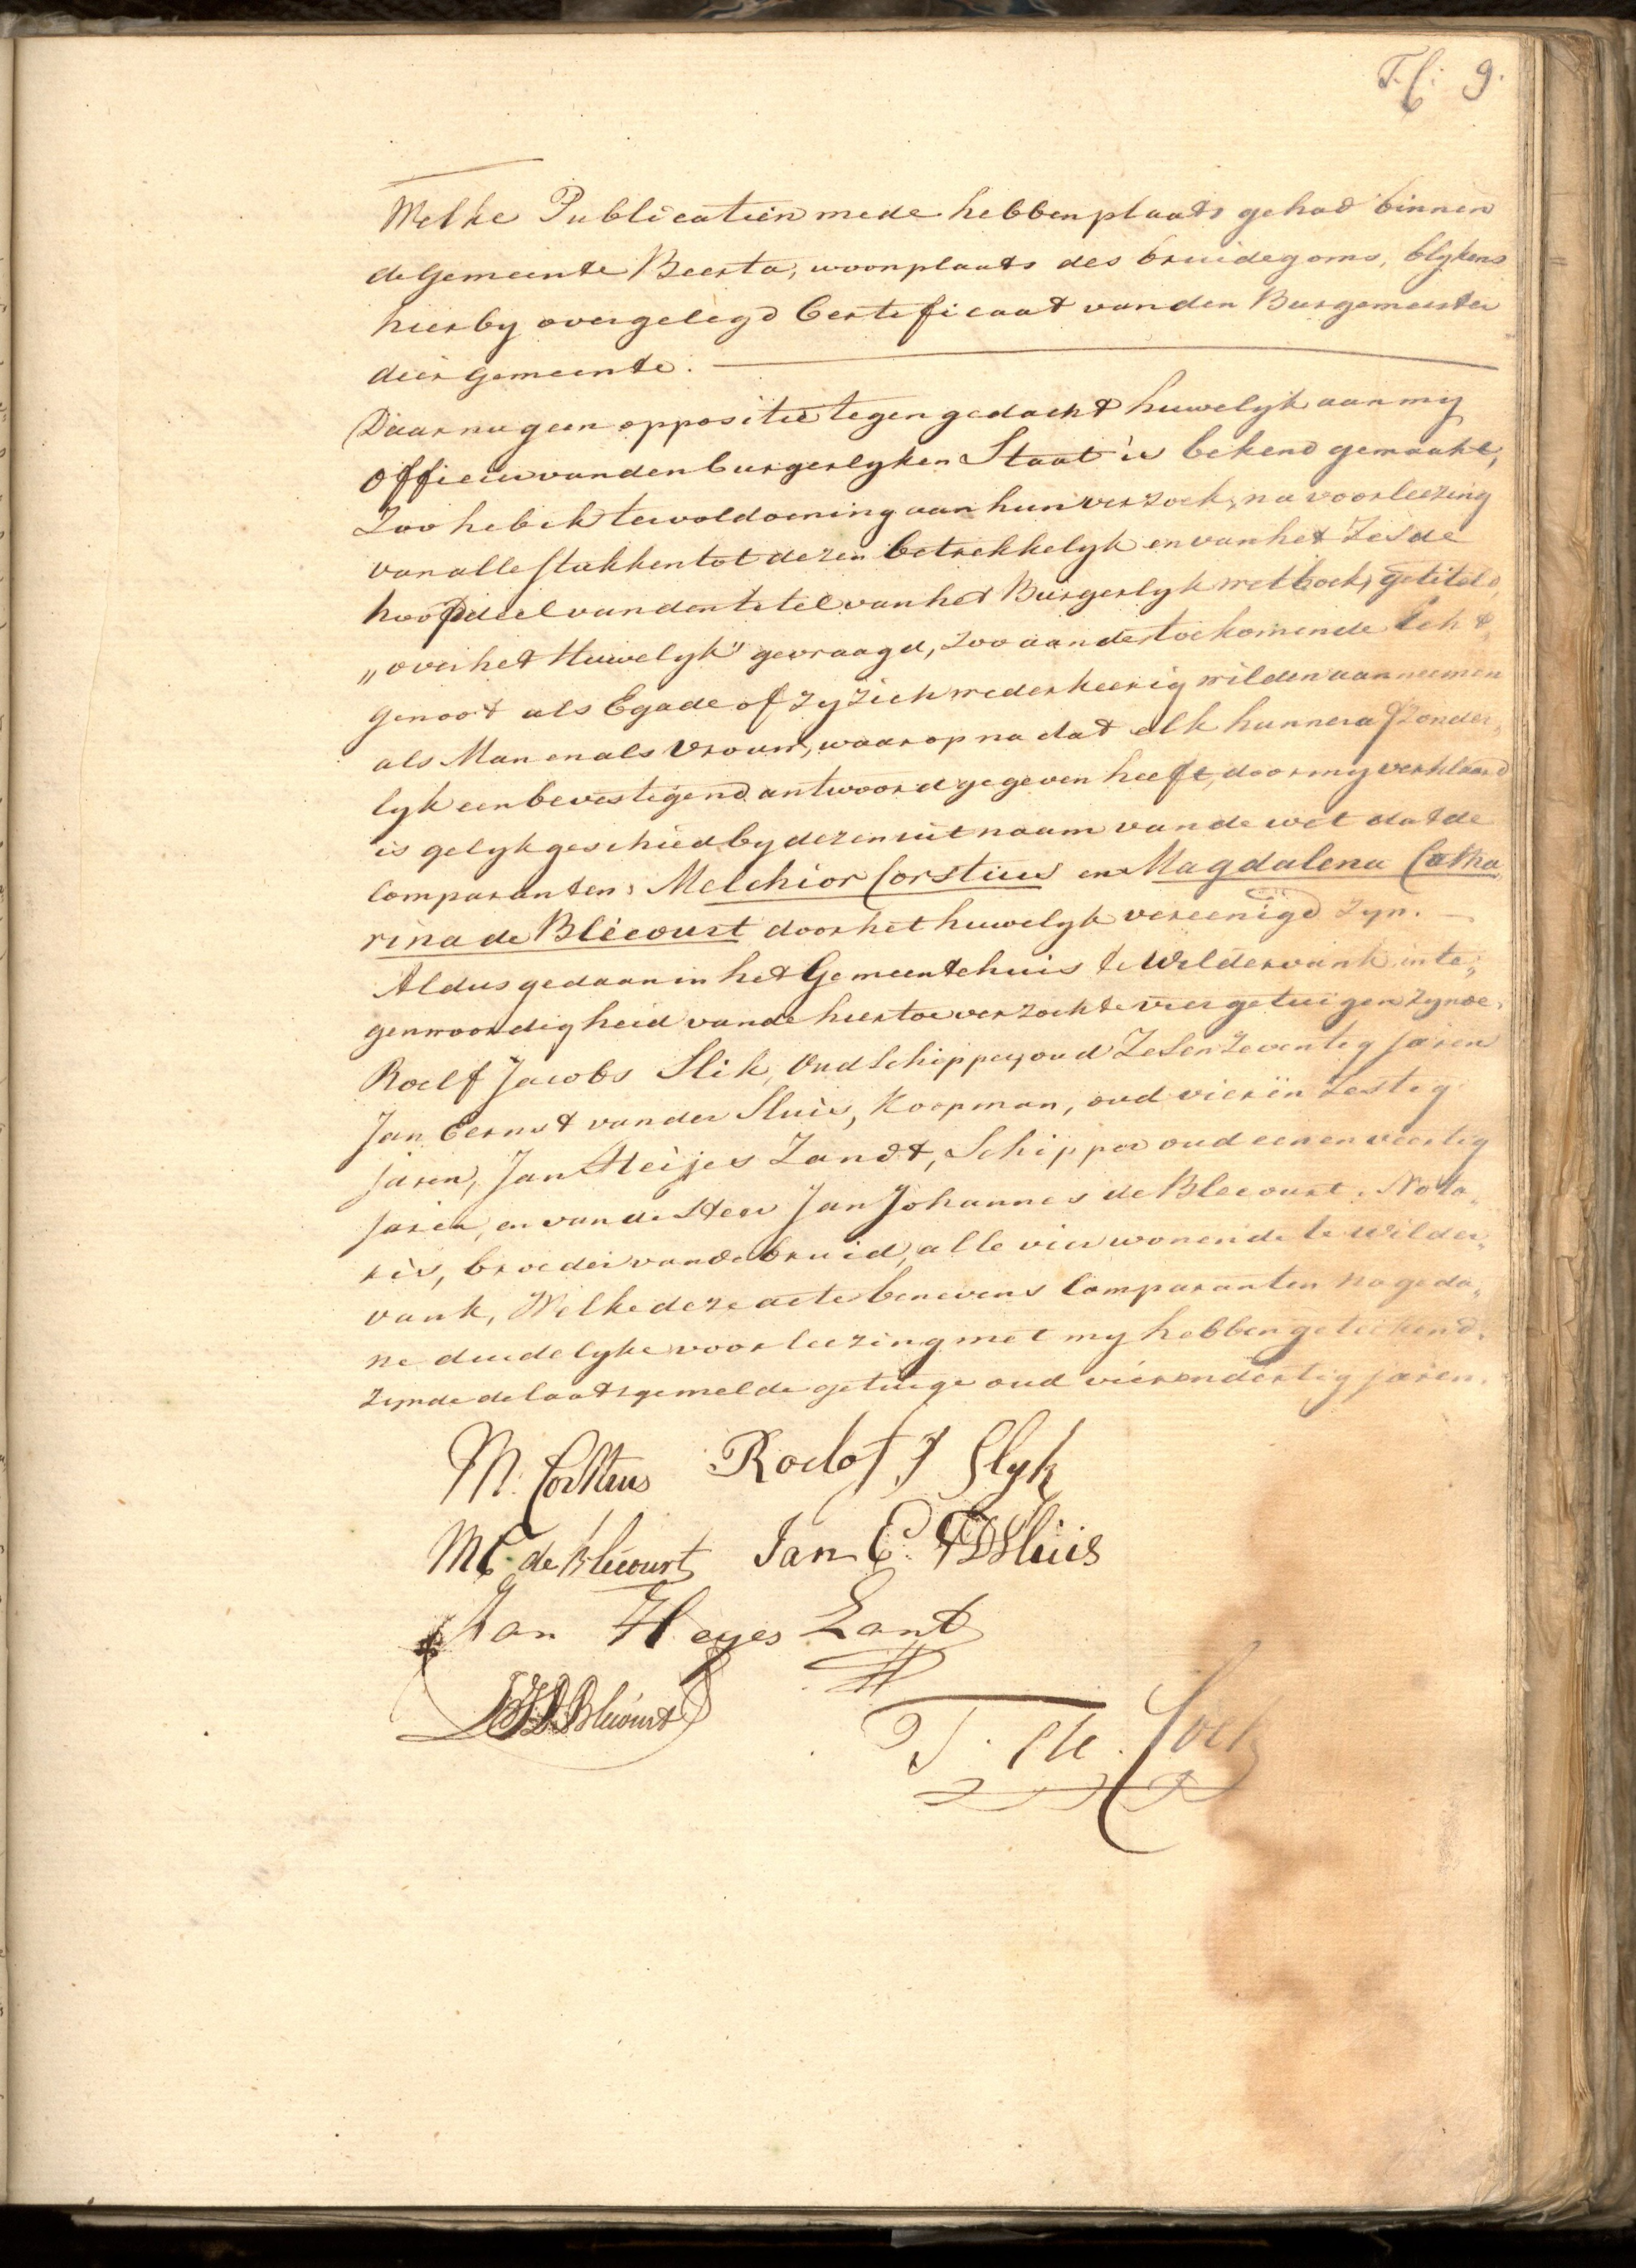 9.
Welke Publicatien mede hebben plaats gehad binnen
de gemeente Beerta, woonplaats des bruidegoms, blykens
hierby overgelegd Certificaat van den Burgemeester
dier gemeente.
Daar nu geen oppositie tegen gedacht huwelyk aan my
officier van den burgerlyken Staat is bekend gemaakt,
Zoo heb ik ter voldoening aan hun verzoek, na voorleezing
van alle stukken tot dezen betrekkelyk en van het Zesde
hoofddeel van den titel van het Burgerlyk wetboek, getiteld,
„over het Huwelyk" gevraagd, zoo aan de toekomende Echt„
genoot als Egade of zy zich wederkeerig wilden aanneemen
als Man en als Vrouw, waarop na dat elk hunner afzonder„
lyk een bevestigend antwoord gegeven heeft, door my verklaard
is gelyk geschied by dezen uit naam van de wet dat de
Comparanten: Melchior Corstius en Magdalena Catha„
rina de Blécourt door het huwelyk vereenigd zyn.
Aldus gedaan in het Gemeentehuis te Wildervank in te„
genwoordigheid van de hiertoe verzochte vier getuigen zynde,
Roelf Jacobs Slik, Oud Schipper, oud Zes en Zeventig jaren
Jan Eernst van der Sluis, Koopman, oud vier en Zestig
jaren, Jan Heijes Zandt, Schipper oud een en veertig
jaren, en van de Heer Jan Johannes de Blecourt, Nota„
ris, broeder van de bruid, alle vier wonende te Wilder„
vank, Welke deze acte benevens Comparanten na geda„
ne duidelyke voorleezing met my hebben geteekend,
zynde de laatstgemelde getuige oud vier en dertig jaren.
M. Corstius Roelof J Slyk
MC de Blécourt Jan E. VD Sluis
Jan Heyes Zant
JJD Blécourt